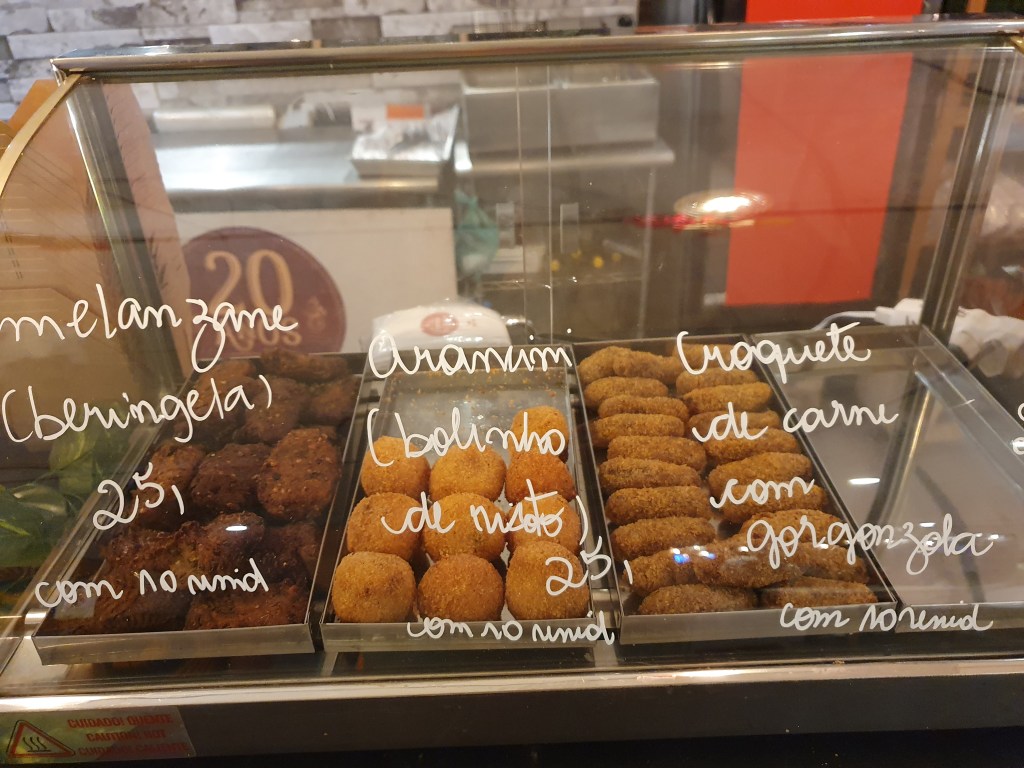 melanzane
(beringela)
25,
com 10 unid
Aranum
(bolinho
de risoto)
25,
com 10 unid
Croquete
de carne
com
gorgonzola
com 10 unid
20
CUIDADO! QUENTE
CAUTION! HOT
CUIDADO! CALIENTE